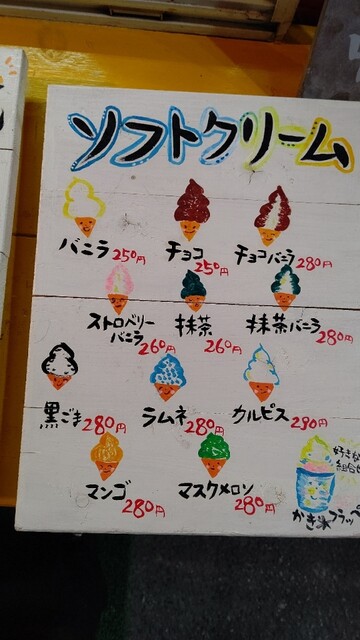 ソフトクリーム
バニラ 250円 チョコ 250円 チョコバニラ 280円
ストロベリー
バニラ 260円 抹茶 260円 抹茶バニラ 280円
黒ごま 280円 ラムネ 280円 カルピス 280円
マンゴ 280円 マスクメロン 280円
好きな
組合せ
かき氷フラッペ